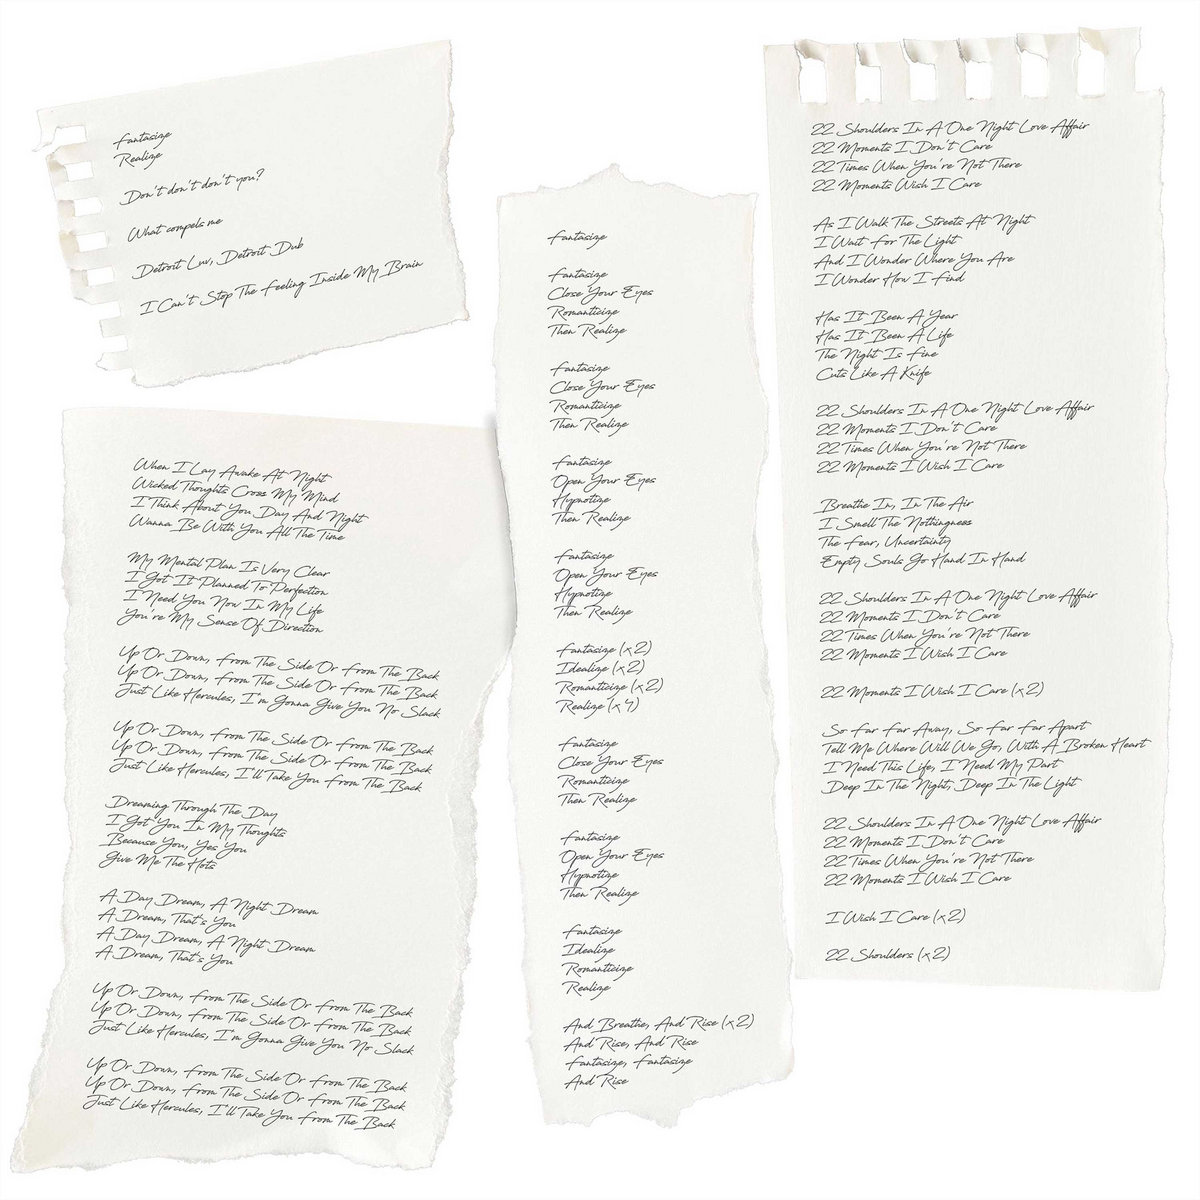 Fantasize
Realize
Don't don't don't you?
What compels me
Detroit Luv, Detroit Dub
I Can't Stop The Feeling Inside My Brain
When I Lay Awake At Night
Wicked Thoughts Cross My Mind
I Think About You Day And Night
Wanna Be With You All The Time
My Mental Plan Is Very Clear
I Got It Planned To Perfection
I Need You Now In My Life
You're My Sense Of Direction
Up Or Down, From The Side Or From The Back
Up Or Down, From The Side Or From The Back
Just Like Hercules, I'm Gonna Give You No Slack
Up Or Down, From The Side Or From The Back
Up Or Down, From The Side Or From The Back
Just Like Hercules, I'll Take You From The Back
Dreaming Through The Day
I Got You In My Thoughts
Because You, Yes You
Give Me The Hots
A Day Dream, A Night Dream
A Dream, That's You
A Day Dream, A Night Dream
A Dream, That's You
Up Or Down, From The Side Or From The Back
Up Or Down, From The Side Or From The Back
Just Like Hercules, I'm Gonna Give You No Slack
Up Or Down, From The Side Or From The Back
Up Or Down, From The Side Or From The Back
Just Like Hercules, I'll Take You From The Back
Fantasize
Fantasize
Close Your Eyes
Romanticize
Then Realize
Fantasize
Close Your Eyes
Romanticize
Then Realize
Fantasize
Open Your Eyes
Hypnotize
Then Realize
Fantasize
Open Your Eyes
Hypnotize
Then Realize
Fantasize (x2)
Idealize (x2)
Romanticize (x2)
Realize (x4)
Fantasize
Close Your Eyes
Romanticize
Then Realize
Fantasize
Open Your Eyes
Hypnotize
Then Realize
Fantasize
Idealize
Romanticize
Realize
And Breathe, And Rise (x2)
And Rise, And Rise
Fantasize, Fantasize
And Rise
22 Shoulders In A One Night Love Affair
22 Moments I Don't Care
22 Times When You're Not There
22 Moments Wish I Care
As I Walk The Streets At Night
I Wait For The Light
And I Wonder Where You Are
I Wonder How I Find
Has It Been A Year
Has It Been A Life
The Night Is Fine
Cuts Like A Knife
22 Shoulders In A One Night Love Affair
22 Moments I Don't Care
22 Times When You're Not There
22 Moments I Wish I Care
Breathe In, In The Air
I Smell The Nothingness
The Fear, Uncertainty
Empty Souls Go Hand In Hand
22 Shoulders In A One Night Love Affair
22 Moments I Don't Care
22 Times When You're Not There
22 Moments I Wish I Care
22 Moments I Wish I Care (x2)
So Far Far Away, So Far Far Apart
Tell Me Where Will We Go, With A Broken Heart
I Need This Life, I Need My Part
Deep In The Night, Deep In The Light
22 Shoulders In A One Night Love Affair
22 Moments I Don't Care
22 Times When You're Not There
22 Moments I Wish I Care
I Wish I Care (x2)
22 Shoulders (x2)